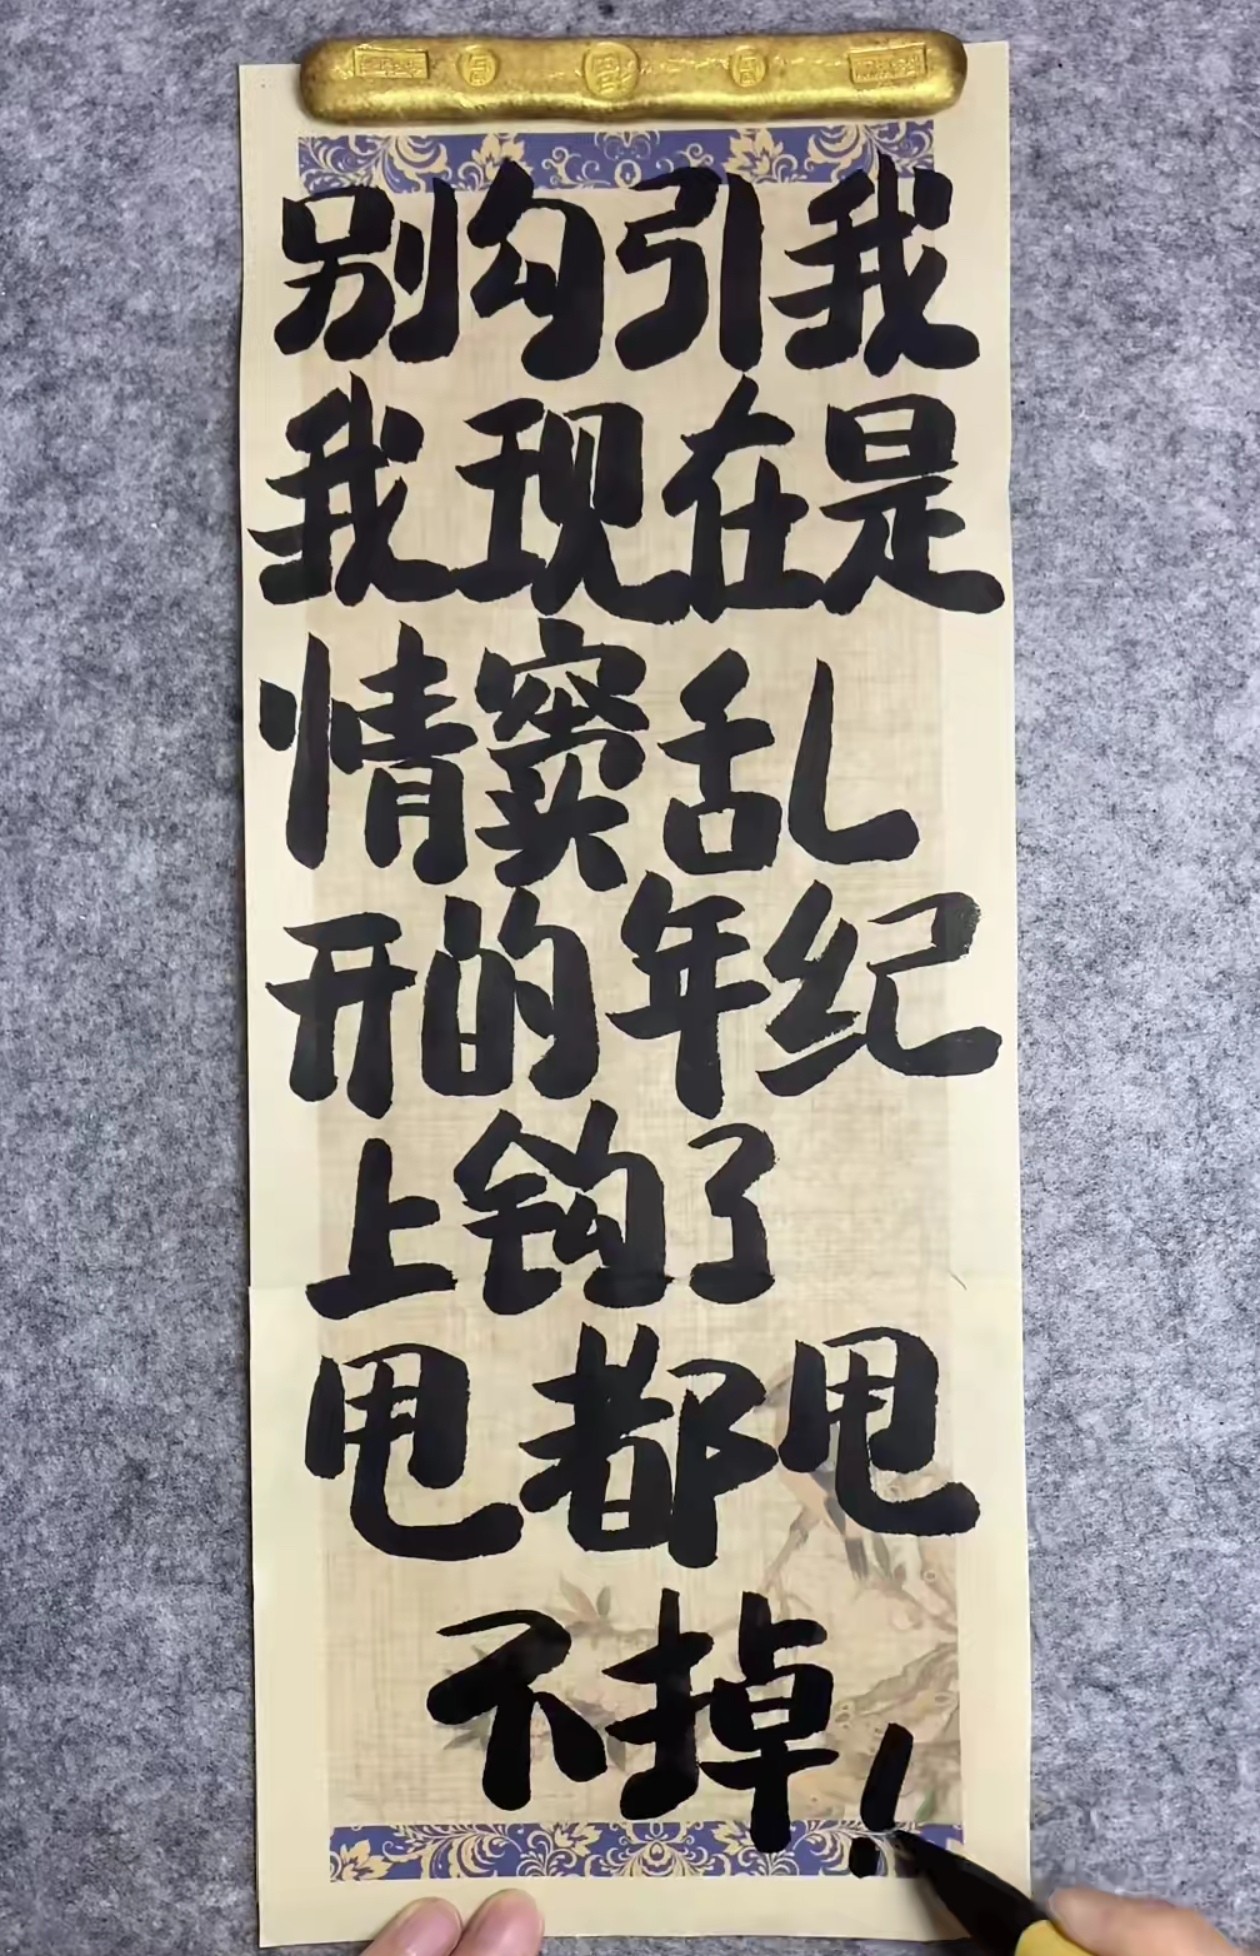 别勾引我
我现在是
情窦乱
开的年纪
上钩了
甩都甩
不掉！